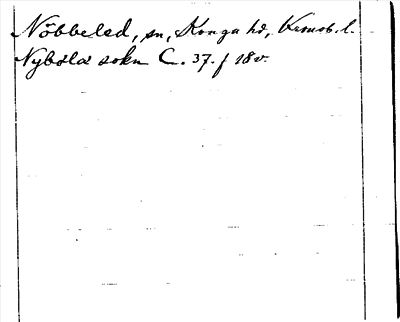 Nöbbeled, sn, Konga hd, Kronob. l.
Nybölæ sokn C. 37. f 18 v.